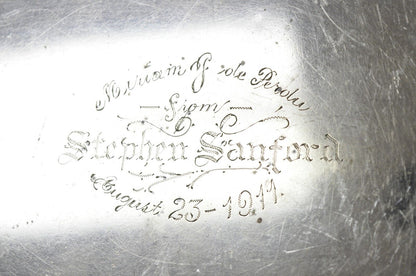 Miriam J de Perdu
— From —
Stephen Sanford
August 23-1911.